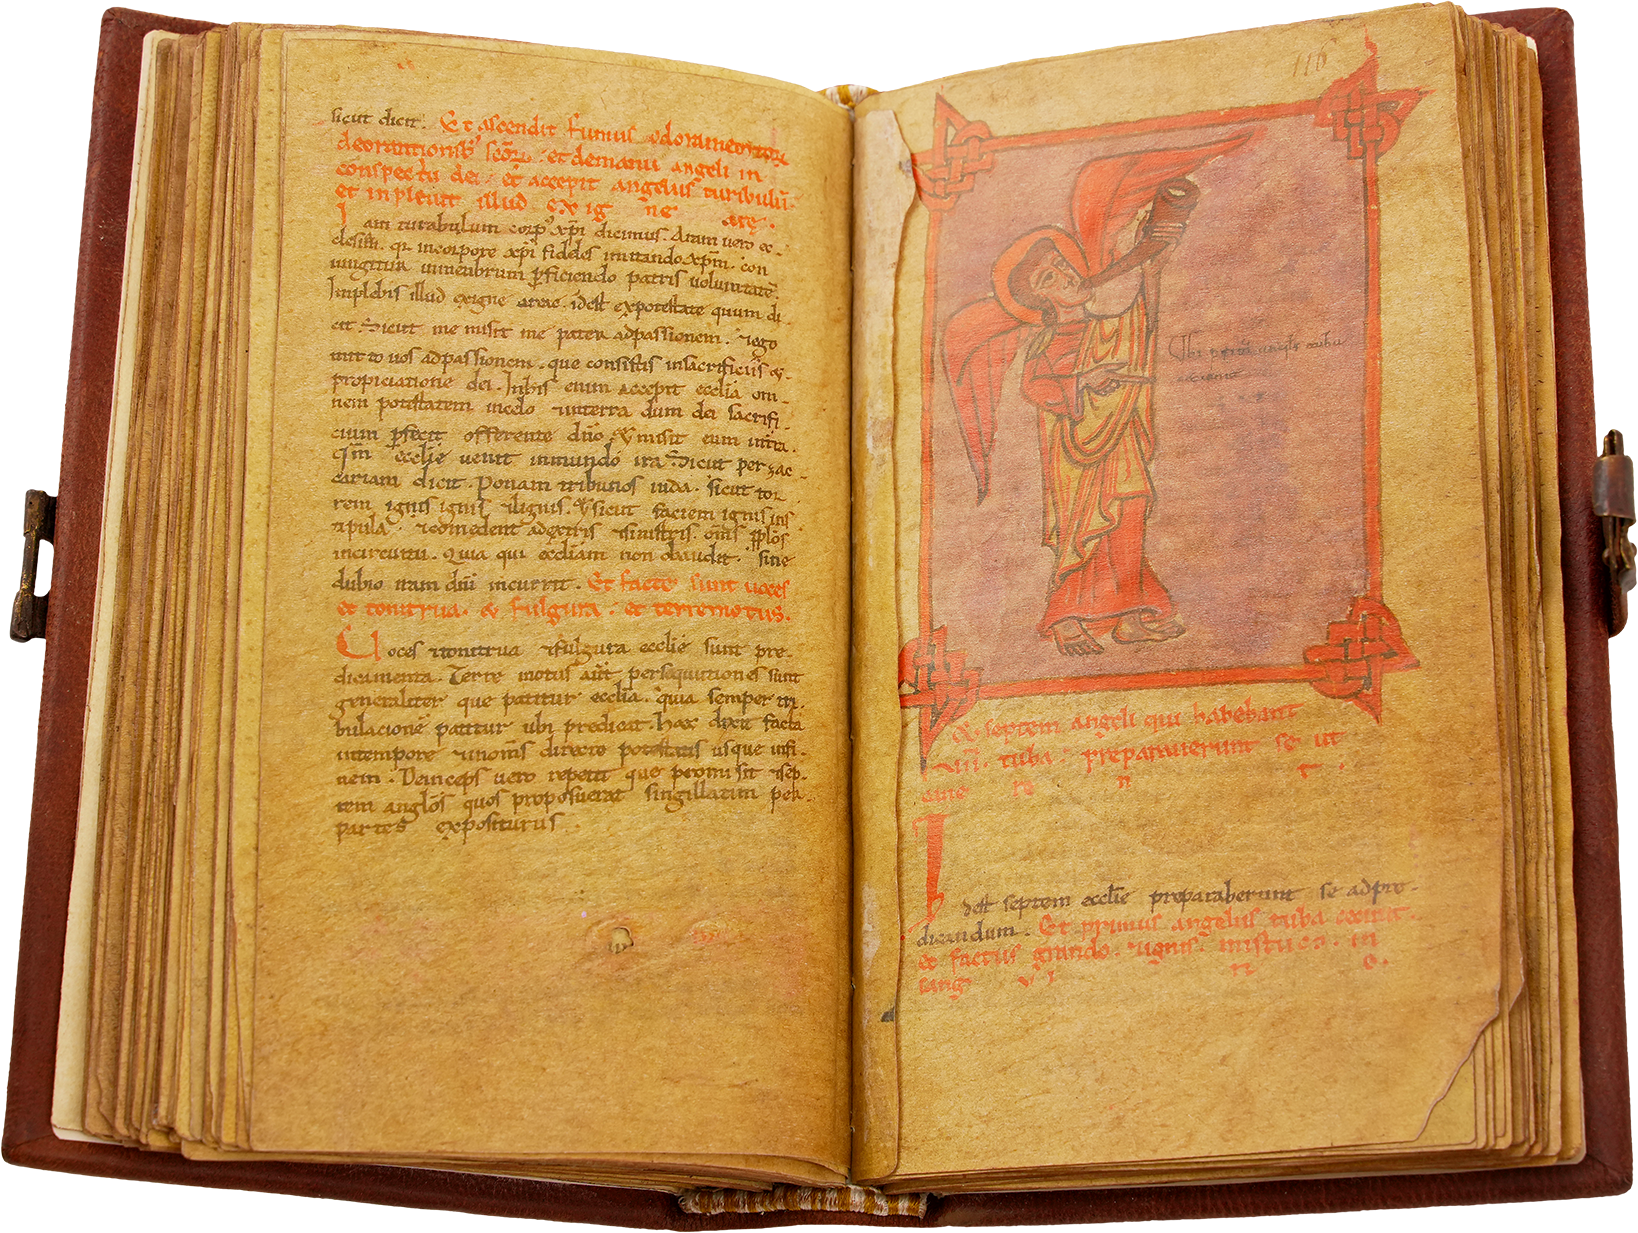 sicut dicit. Et ascendit fumus odoramentorũ
deorationibꝰ scõꝝ. et demanu angeli in
conspectu dei. et accepit angelus turibulũ.
et inplevit illud ex ig ne are.
I am turabulum corpꝰ xp̃i dicimus. Aram vero ec-
clesiã. qr incorpore xp̃i fideles imitando xp̃m. con
iungitur ꝑficiendo patris voluntatẽ.
Implebis illud exigne arae. idest expotestate quum di-
cit. Sicut me misit me pater adpassionem. & ego
mitto vos adpassionem. que consistis insacrificiis &
propiciatione dei. In his enim accepit ecclia om-
nem potestatem incelo & interra dum dei sacrifi-
cium ꝑfecit offerente dño. & misit eum intra.
Qm̃ ecclie venit inmundo ira. Sicut per zac-
cariam dicit. Ponam tribunos iuda. sicut tor-
rem ignis ignis & lignis. & sicut faciem ignis ins
tipula. & comedent adextris & sinistris. oms pp̃los
incircuitu. Quia qui eccliam non obaudit. sine
dubio iram dñi incurrit. Et facte sunt voces
et tonitrua. & fulgura. et terremotus.
Uoces & tonitrua & fulgura ecclie sunt pre-
dicamenta. Terre motus aut̃ persequutiones sunt
generaliter que patitur ecclia. quia semper tri-
bulacionẽ patitur ubi predicat. Hax dixit facta
intempore & in oms directo potestatis usque infi-
nem. Deinceps vero repetit que promisit & sep-
tem anglos quos proposuerat singillatim per
partes expositurus.
116
Ubi primũ angls tuba
cecinit
& septem angeli qui habebant
VII. tuba. preparaverunt se ut
cane re n t.
I
dest septem ecclie preparaberunt se adpre-
dicandum. Et primus angelus tuba cecinit.
et factus grando. & ignis. mistus. in
sang vi n e.